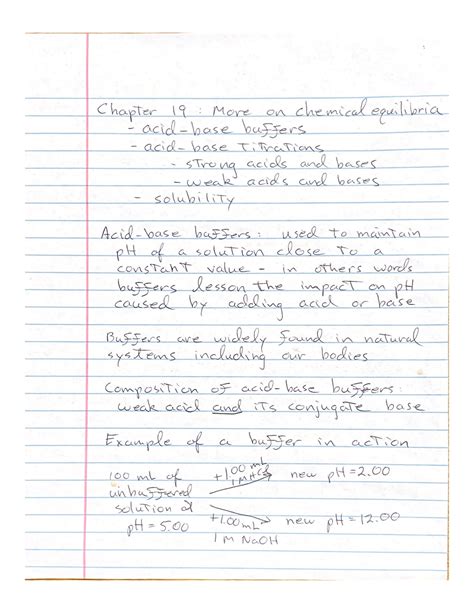 Chapter 19 : More on chemical equilibria
- acid-base buffers
- acid-base titrations
- strong acids and bases
- weak acids and bases
- solubility
Acid-base buffers : used to maintain
pH of a solution close to a
constant value - in others words
buffers lesson the impact on pH
caused by adding acid or base
Buffers are widely found in natural
systems including our bodies
Composition of acid-base buffers:
weak acid and its conjugate base
Example of a buffer in action
100 mL of +1.00 mL 1 M HCl new pH = 2.00
unbuffered
solution at
pH = 5.00 +1.00 mL 1 M NaOH new pH = 12.00